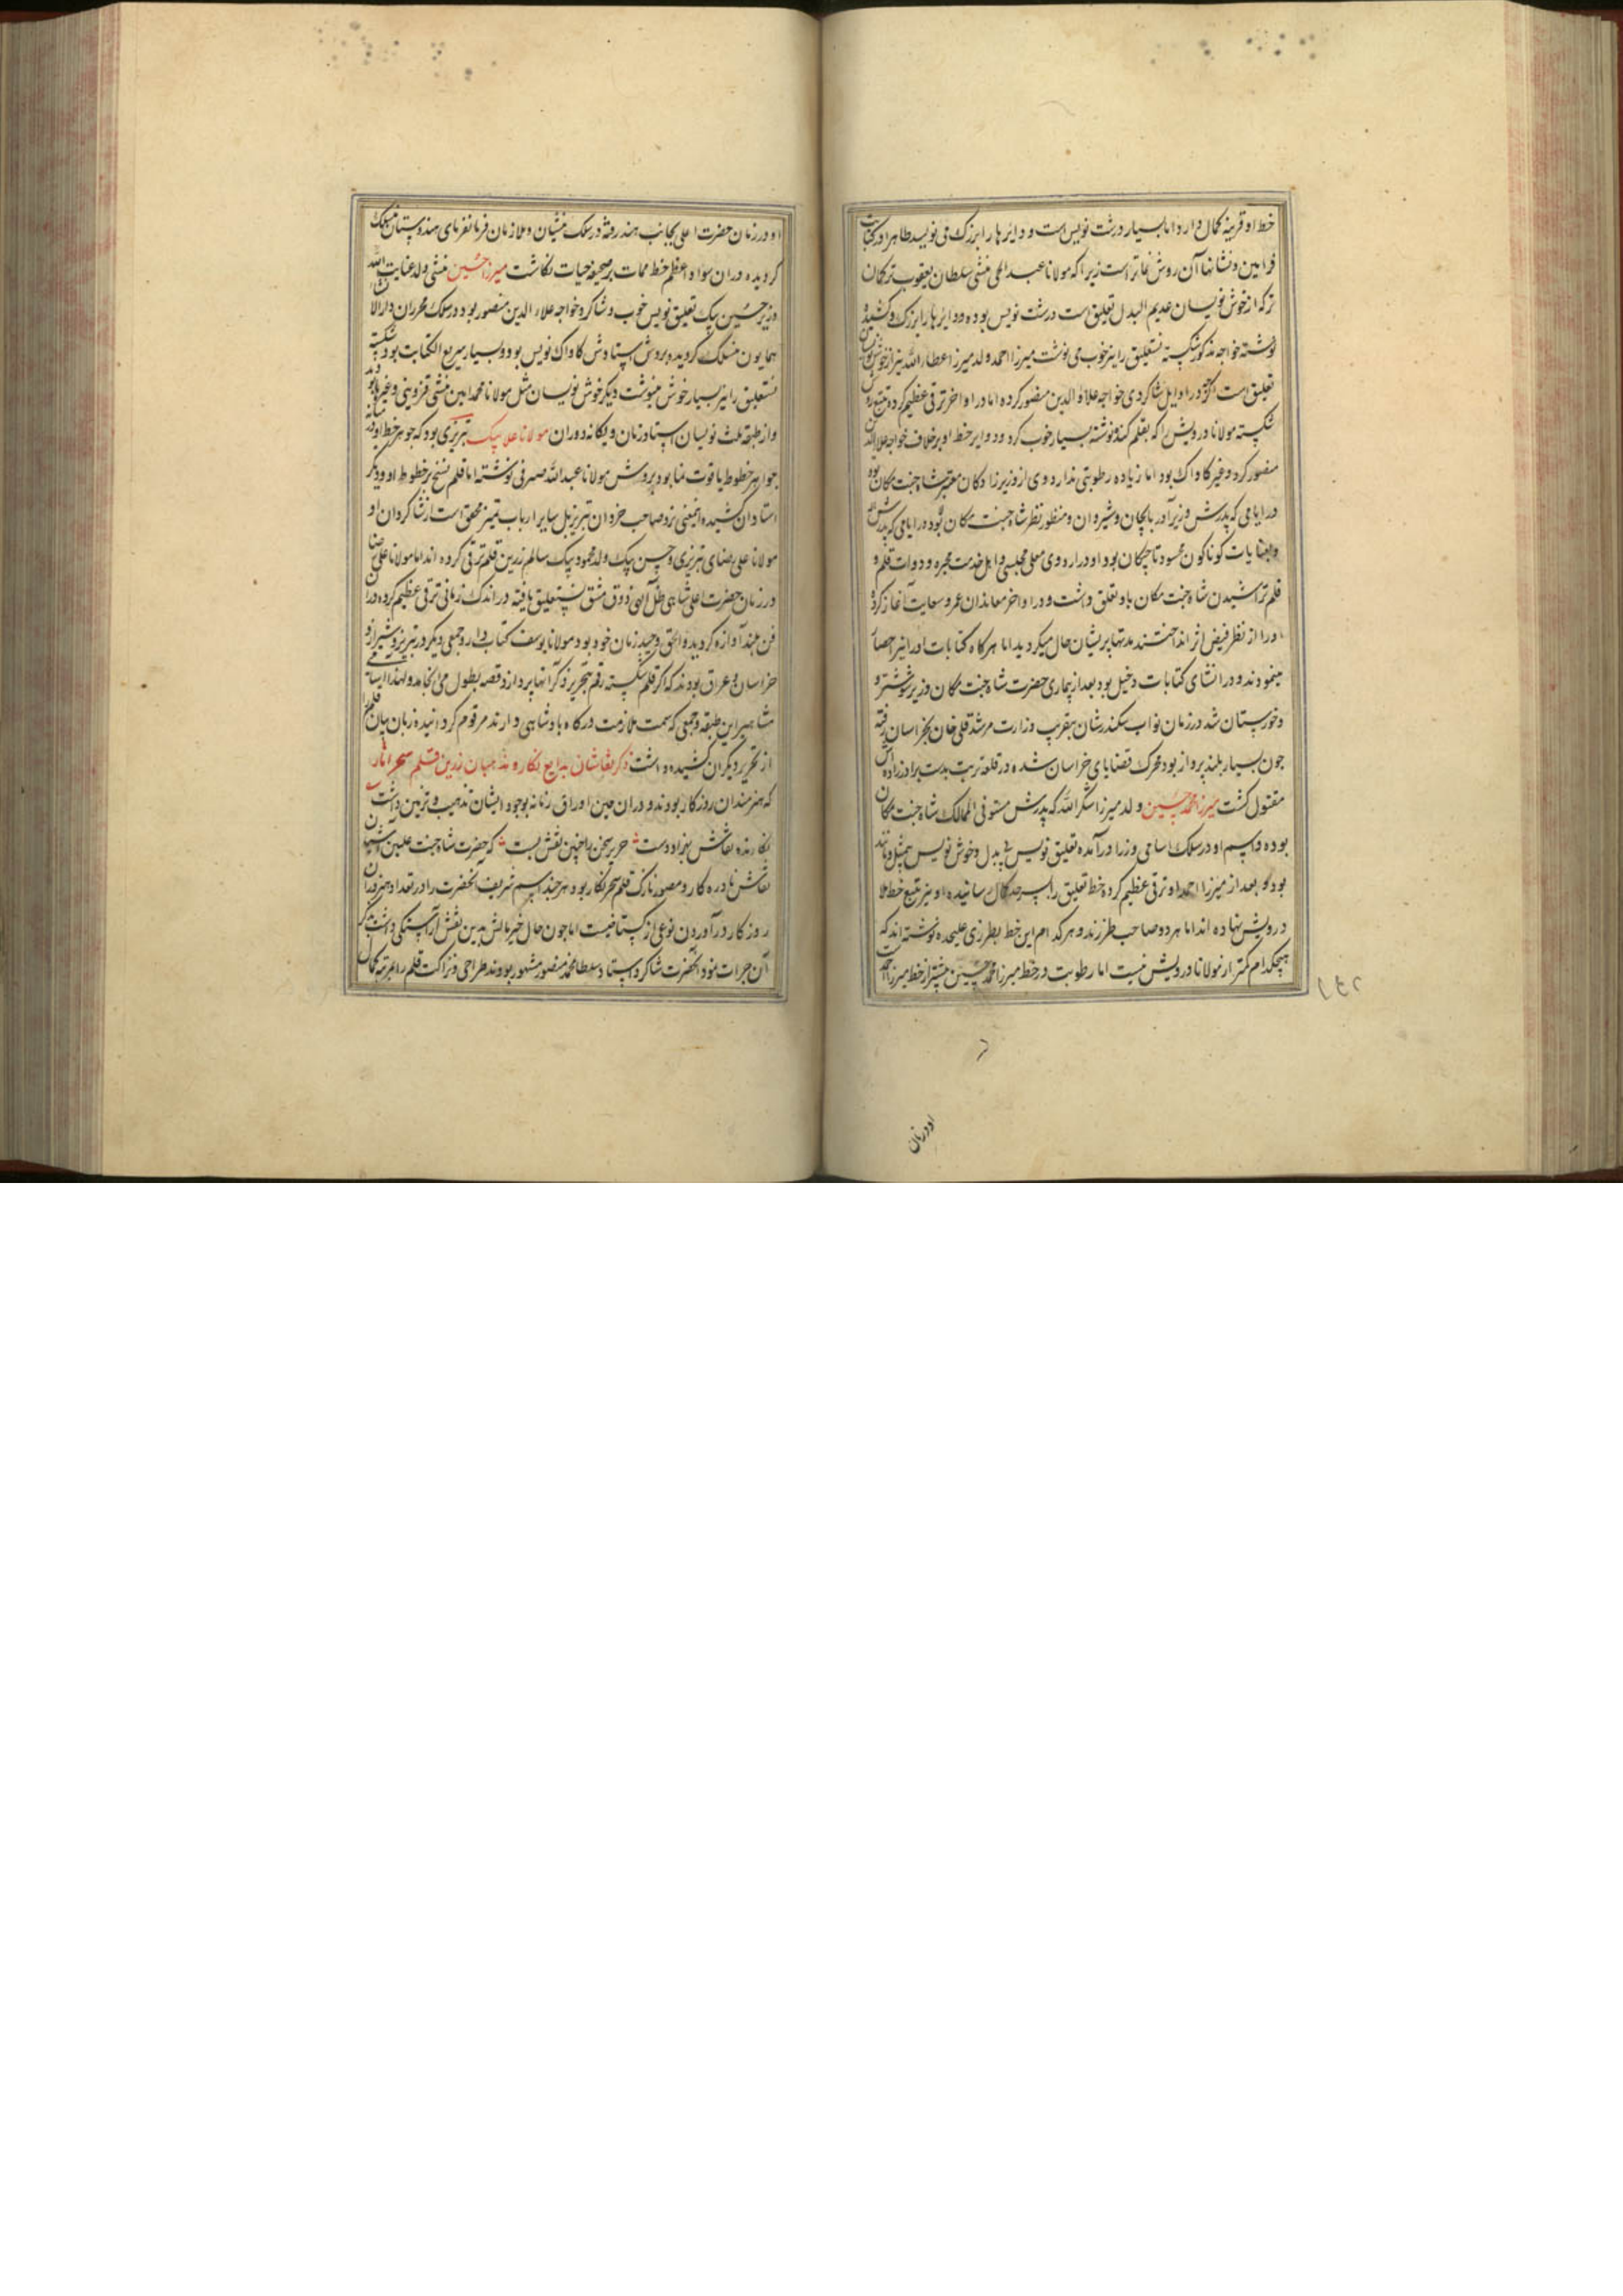 خط او قرینه کمال دارد اما بسیار درشت نویس است و دوایر ها را بزرک می نویسد ظاهرا در کتابت
فرامین و نشانها آن روش بهتر است زیرا که مولانا عبدالحی منشی سلطان یعقوب ترکمان
ترک از خوش نویسان عدیم البدل تعلیق است درشت نویس بوده و دوایر ها را بزرک و کشیده
نوشته خواجه مذکور شکسته نستعلیق را نیز خوب می نوشت میرزا احمد ولد میرزا عطاء الله نیز از خوش نویسان
تعلیق است اکرچه در اوایل شاکردی خواجه علاء الدین منصور کرده اما در اواخر ترقی عظیم کرده تتبع روش
شکسته مولانا درویش را که بقلم کند نوشته بسیار خوب کرد و دوایر خط او بر خلاف خواجه علاء الدین
منصور کرد و غیر کاواک بود اما زیاده رطوبتی ندارد وی از وزیرزادکان معتبر شاه جنت مکان بود
در ایامی که پدرش وزیر آذربایجان و شیروان و منظور نظر شاه جنت مکان بود در ایامی که پدرش
بعنایات کوناکون محسود تاجیکان بود او در اردوی معلی مجلسی و اهل خدمت محبره و دوات قلم و
قلم تراشیدن شاه جنت مکان باو تعلق داشت و در اواخر معاندان غمز و سعایت آغاز کرده
او را از نظر فیض اثر انداختند مدتها پریشان حال میکردید اما هرکاه کتابات او را نیز احضار
مینمودند و در انشای کتابات دخیل بود بعد از بیماری حضرت شاه جنت مکان وزیر شوشتر و
و خوزستان شد در زمان نواب سکندرشان بتقریب وزارت مرشد قلی خان بخراسان رفته
چون بسیار بلند پرواز بود محرک قضایای خراسان شده در قلعه تربت بدست برادرزاده اش
مقتول کشت میرزا محمد حسین ولد میرزا شکر الله که پدرش مستوفی الممالک شاه جنت مکان
بوده و اسم او در سلک اسامی وزرا درآمده تعلیق نویس بی بدل و خوش نویس بیمثل و مانند
بود و بعد از میرزا احمد او ترقی عظیم کرده خط تعلیق را بسرحد کمال رسانیده او نیز تتبع خط ملا
درویش نهاده اند اما هر دو صاحب طرزند و هر کدام این خط بطرزی علیحده نوشته اند که
هیچکدام کمتر از مولانا درویش نیست اما رطوبت در خط میرزا محمد حسین بیشتر از خط میرزا احمد است
او در زمان
او در زمان حضرت اعلی بجانب هند رفته در سلک منشیان و ملازمان فرمانفرمای هندوستان منسلک
کردیده در ان سواد اعظم خط ممات بر صحیفه حیات نکاشت میرزا حسین منشی ولد عنایت الله
وزیر حسین بیک تعلیق نویس خوب و شاکرد خواجه علاء الدین منصور بود در سلک محرران دارالانشاء
همایون منسلک کردیده و بروش استادش کاواک نویس بود و بسیار سریع الکتابت بود شکسته
نستعلیق را نیز بسیار خوش مینوشت دیکر خوش نویسان مثل مولانا محمد امین منشی قزوینی و غیره بودند
و از طبقه ثلث نویسان استاد زمان و یکانه دوران مولانا علا بیک تبریزی بود که جوهر خط او در میانه
جواهر خطوط یاقوت نما بود بروش مولانا عبدالله صیرفی نوشته اما قلم نسخ بر خطوط او و دیکر
استادان کشیده اینمعنی نزد صاحب خردان تبریز بل سایر ارباب تمیز محقق است از شاکردان او
مولانا علی رضای تبریزی و حسن بیک ولد محمود بیک سالم زرین قلم ترقی کرده اند اما مولانا علی رضا
در زمان حضرت اعلی شاهی ظل اللهی ذوق مشق نستعلیق یافته در اندک زمانی ترقی عظیم کرده در ان
فن بلند آوازه کردید و الحق وحید زمان خود بود مولانا یوسف کتاب دار و جمعی دیکر در تبریز و شیراز و
خراسان و عراق بودند که اکر قلم شکسته رقم بتحریر ذکر آنها پردازد قصه بطول می انجامد و لهذا اسامی
مشاهیر این طبقه و جمعی که سمت ملازمت درکاه بادشاهی دارند مرقوم کردانیده زبان بیان قلم را
از تحریر دیکران کشیده داشت ذکر نقاشان بدایع نکار و مذهبان زرین قلم سحر آثار
که هنرمندان روزکار بودند و در ان حین اوراق زمانه بوجود ایشان تذهیب و تزیین داشت
نکارنده نقاش بهزاد دست حریر سخن را چنین نقش بست که حضرت شاه جنت علیین آشیان
نقاش نادره کار و مصور نازک قلم سحر نکار بود هر چند اسم شریف انحضرت را در تعداد هنروران
روزکار در آوردن نوعی از کستاخیست اما چون حال خیر مالش بدین نقش آراستکی داشت
آن جرات نمود انحضرت شاکرد استاد سلطان محمد مصور مشهور بودند طراحی و نزاکت قلم را بمرتبه کمال